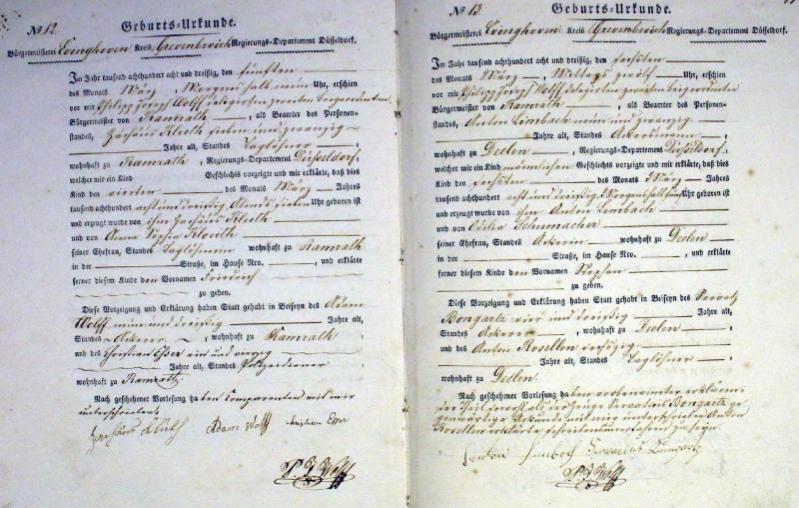 No 12.
Geburts-Urkunde.
Bürgermeisterei Evinghoven Kreis Grevenbroich Regierungs-Departement Düsseldorf.
Im Jahr tausend achthundert acht und dreißig, den fünften
des Monats März, Morgens halb neun Uhr, erschien
vor mir Philipp Joseph Wolff delegirten zweiten Beigeordneten
Bürgermeister von Ramrath, als Beamter des Personen-
standes, Zachäus Klüth sieben und zwanzig
Jahre alt, Standes Taglöhner
wohnhaft zu Ramrath, Regierungs-Departement Düsseldorf,
welcher mir ein Kind Geschlechts vorzeigte und mir erklärte, daß dies
Kind den vierten des Monats März Jahres
tausend achthundert acht und dreißig Abends sieben Uhr geboren ist
und erzeugt wurde von ihm Zachäus Klüth
und von Anna Sophia
seiner Ehefrau, Standes Taglöhnerin wohnhaft zu Ramrath
in der Straße, im Hause Nro. , und erklärte
ferner diesem Kinde den Vornamen Friedrich
zu geben.
Diese Vorzeigung und Erklärung haben Statt gehabt in Beiseyn des Adam
Wolff neun und dreißig Jahre alt,
Standes Ackerer, wohnhaft zu Ramrath
und des Christian Esser ein und vierzig
Jahre alt, Standes Polizeidiener
wohnhaft zu Ramrath
Nach geschehener Vorlesung haben Comparenten mit mir
unterschrieben.
Zachäus Klüth Adam Wolff Christian Esser
P. J. Wolff
No 13
Geburts-Urkunde.
Bürgermeisterei Evinghoven Kreis Grevenbroich Regierungs-Departement Düsseldorf.
Im Jahr tausend achthundert acht und dreißig, den sechsten
des Monats März, Mittags zwölf Uhr, erschien
vor mir Philipp Joseph Wolff delegirten zweiten Beigeordneten
Bürgermeister von Ramrath, als Beamter des Personen-
standes, Anton Limbach neun und zwanzig
Jahre alt, Standes Ackersmann
wohnhaft zu Deelen, Regierungs-Departement Düsseldorf,
welcher mir ein Kind männlichen Geschlechts vorzeigte und mir erklärte, daß dies
Kind den sechsten des Monats März Jahres
tausend achthundert acht und dreißig Morgens halb fünf Uhr geboren ist
und erzeugt wurde von ihm Anton Limbach
und von Odilia Schumacher
seiner Ehefrau, Standes Ackerin wohnhaft zu Deelen
in der Straße, im Hause Nro. , und erklärte
ferner diesem Kinde den Vornamen Stephan
zu geben.
Diese Vorzeigung und Erklärung haben Statt gehabt in Beiseyn des Servatz
Bongartz vier und dreißig Jahre alt,
Standes Ackerer, wohnhaft zu Deelen
und des Anton Rosellen dreißig
Jahre alt, Standes Taglöhner
wohnhaft zu Deelen.
Nach geschehener Vorlesung haben
der Zeuge Bongartz
gegenwärtige Urkunde mit mir unterschrieben Anton
Rosellen erklärte Schreibens unerfahren zu seyn.
Anton Limbach Bungartz
P. J. Wolff